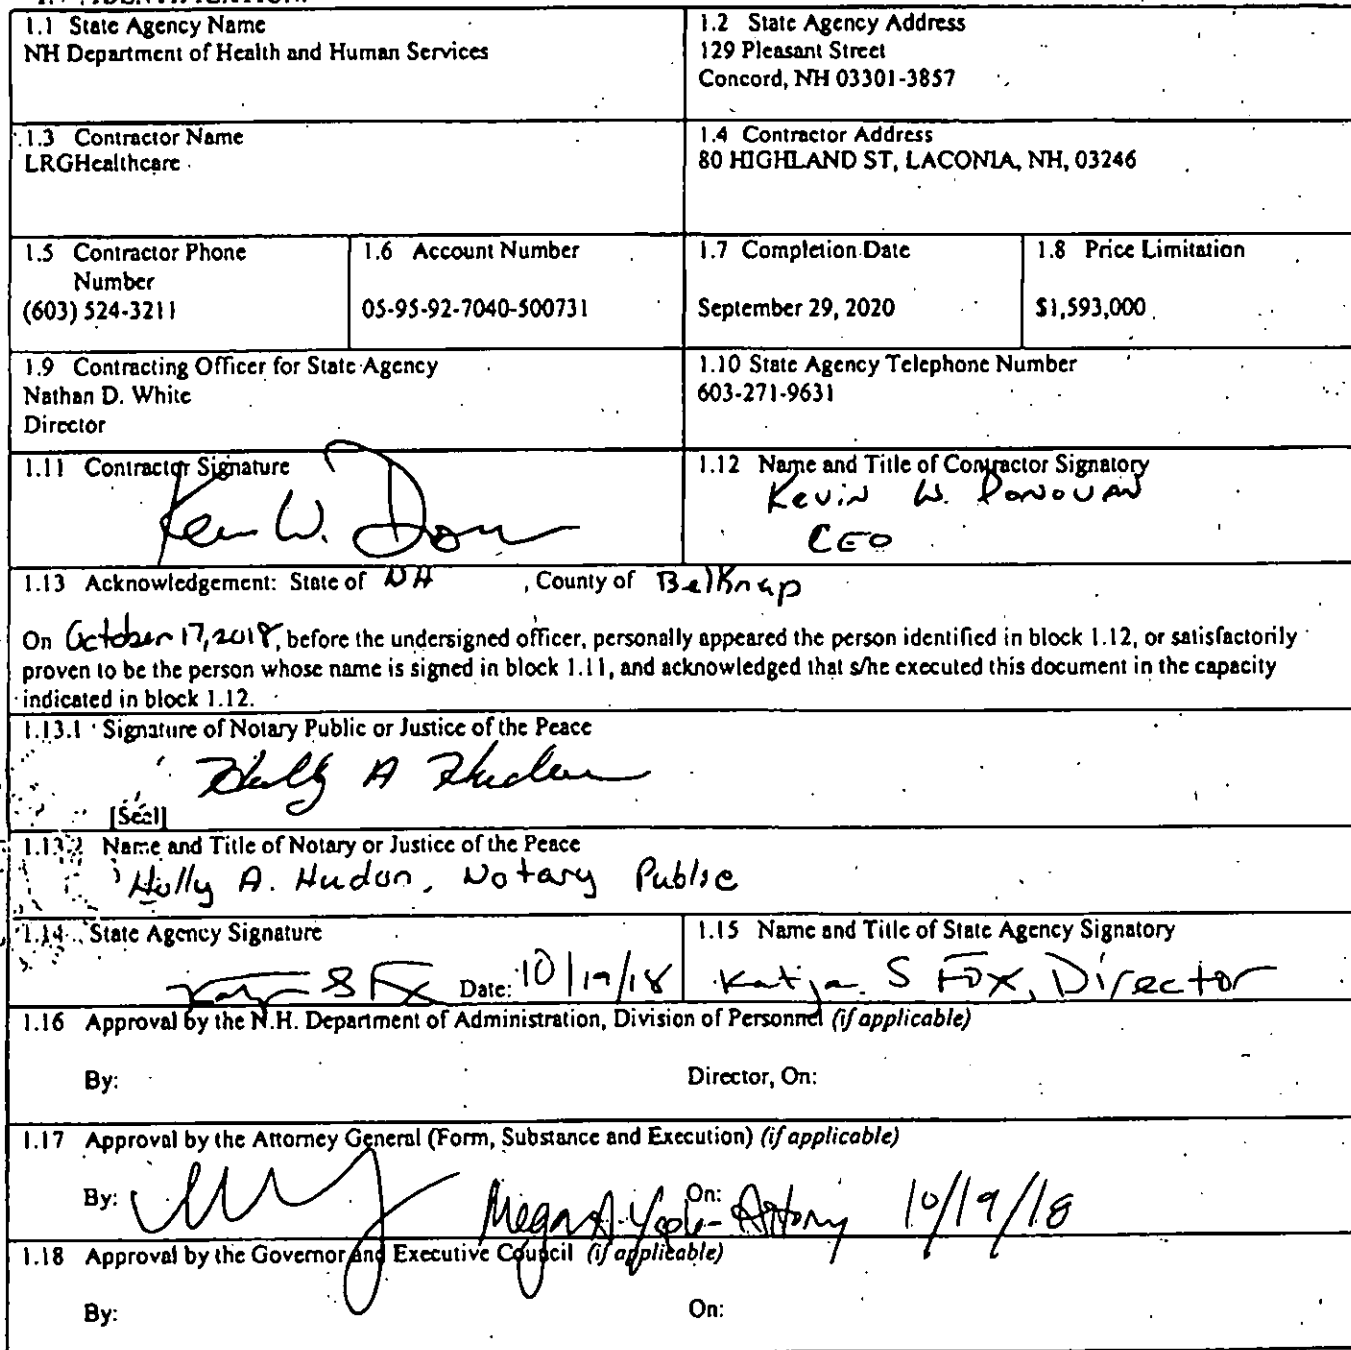 1.1 State Agency Name
NH Department of Health and Human Services
1.2 State Agency Address
129 Pleasant Street
Concord, NH 03301-3857
1.3 Contractor Name
LRGHealthcare
1.4 Contractor Address
80 HIGHLAND ST, LACONIA, NH, 03246
1.5 Contractor Phone
Number
(603) 524-3211
1.6 Account Number
05-95-92-7040-500731
1.7 Completion Date
September 29, 2020
1.8 Price Limitation
$1,593,000
1.9 Contracting Officer for State Agency
Nathan D. White
Director
1.10 State Agency Telephone Number
603-271-9631
1.11 Contractor Signature
1.12 Name and Title of Contractor Signatory
Kevin W. Donovan
CEO
1.13 Acknowledgement: State of NH , County of Belknap
On October 17, 2018, before the undersigned officer, personally appeared the person identified in block 1.12, or satisfactorily
proven to be the person whose name is signed in block 1.11, and acknowledged that s/he executed this document in the capacity
indicated in block 1.12.
1.13.1 Signature of Notary Public or Justice of the Peace
Holly A Hudon
[Seal]
1.13.2 Name and Title of Notary or Justice of the Peace
Holly A. Hudon, Notary Public
1.14 State Agency Signature
Date: 10/19/18
1.15 Name and Title of State Agency Signatory
Katja S Fox, Director
1.16 Approval by the N.H. Department of Administration, Division of Personnel (if applicable)
By: Director, On:
1.17 Approval by the Attorney General (Form, Substance and Execution) (if applicable)
By: On: 10/19/18
1.18 Approval by the Governor and Executive Council (if applicable)
By: On: